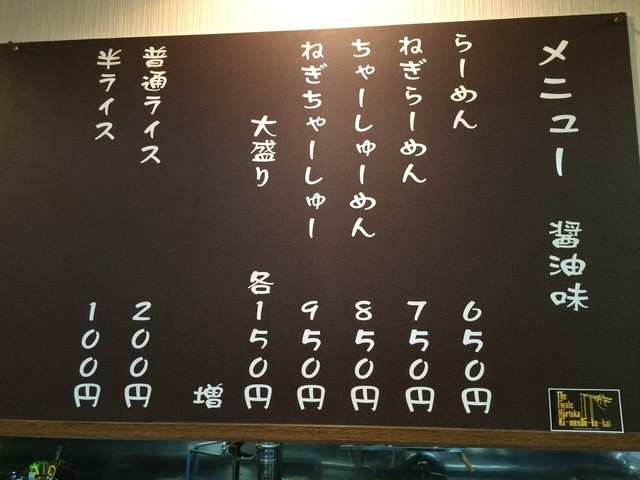 メニュー 醤油味
らーめん 650円
ねぎらーめん 750円
ちゃーしゅーめん 850円
ねぎちゃーしゅー 950円
大盛り 各150円
増
普通ライス 200円
半ライス 100円
The
Iwate
Morioka